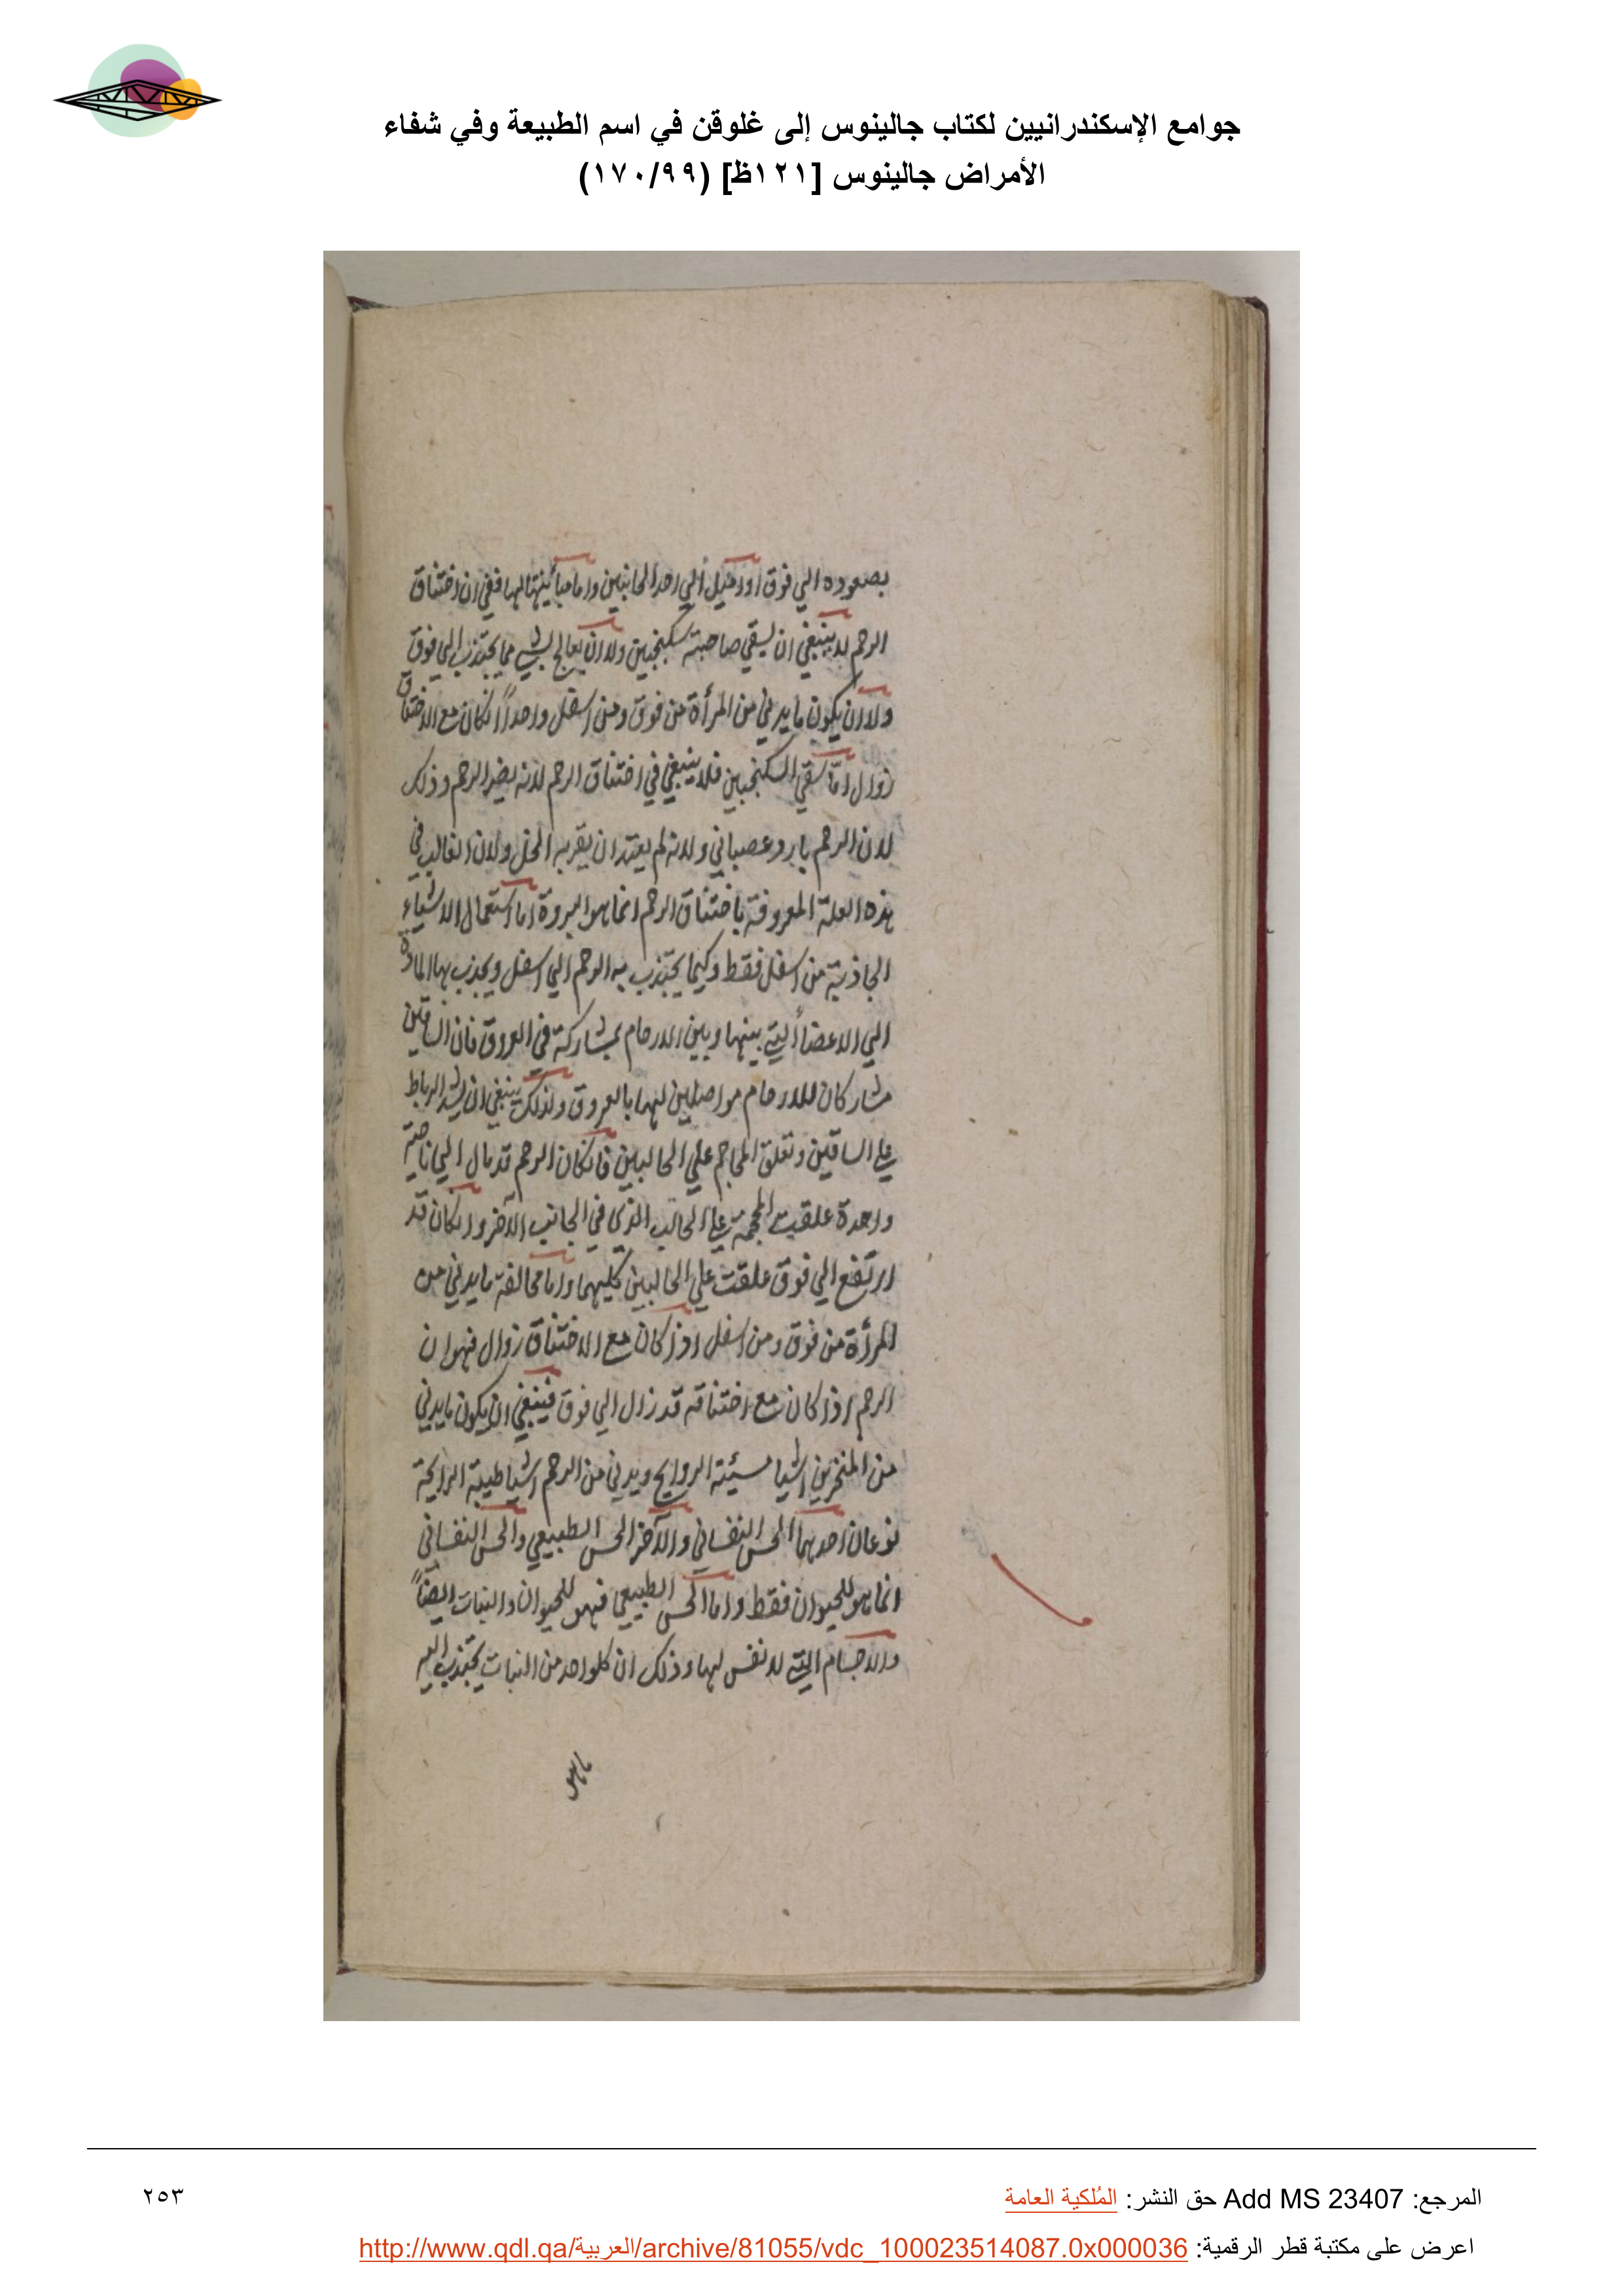 جوامع الإسكندرانيين لكتاب جالينوس إلى غلوقن في اسم الطبيعة وفي شفاء
الأمراض جالينوس [١٢١ظ] (١٧٠/٩٩)
بصعوده الي فوق او دخيل الي احد الجانبين واما مباينتها لها ففي ان اختناق
الرحم لا ينبغي ان يسقي صاحبته سكنجبين ولا ان يعالج بشي مما يجتذب الي فوق
ولا ان يكون ما يدني من المرأة من فوق ومن اسفل واحداً انكان مع الاختناق
زوال امّا سقي السكنجبين فلا ينبغي في اختناق الرحم لانه يضر الرحم وذلك
لان الرحم بارد عصباني ولانه لم يعتد ان يقربه الخل ولان الغالب في
هذه العلة المعروفة باختناق الرحم انما هو البرودة اما استعمال الاشياء
الجاذبة من اسفل فقط وكيما يجتذب به الرحم الي اسفل ويجذب بها المادة
الي الاعضأ التي بينها وبين الارحام مشاركة في العروق فان الساقين
مشاركان للارحام مواصلين لها بالعروق ولذلك ينبغي ان يشد الرباط
علي الساقين وتعلق المحاجم علي الحالبين فانكان الرحم قد مال الي ناحية
واحدة علقت المحجمة علي الحالب الذي في الجانب الآخر وانكان قد
ارتفع الي فوق علقت علي الحالبين كليهما واما مخالفة ما يدني من
المرأة من فوق ومن اسفل اذا كان مع الاختناق زوال فهو ان
الرحم اذا كان مع اختناقه قد زال الي فوق فينبغي ان يكون ما يدني
من المنخرين اشيا سيئة الروايح ويدني من الرحم اشيا طيبة الرايحة
نوعان احدهما الحس النفساني والآخر الحس الطبيعي والحس النفساني
انما هو للحيوان فقط واما الحس الطبيعي فهو للحيوان والنبات ايضاً
والاجسام التي لا نفس لها وذلك ان كلواحد من النبات يجتذب اليه
ما هو
المرجع: Add MS 23407 حق النشر: المُلكية العامة
٢٥٣
اعرض على مكتبة قطر الرقمية: http://www.qdl.qa/العربية/archive/81055/vdc_100023514087.0x000036